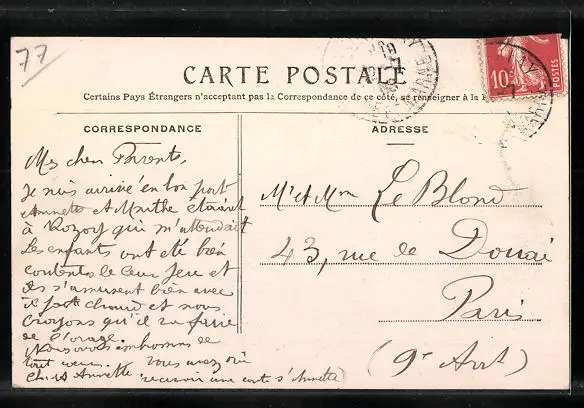 77
CARTE POSTALE
Certains Pays Étrangers n'acceptant pas la Correspondance de ce côté, se renseigner à la
CORRESPONDANCE
ADRESSE
10c
POSTES
Mes chers Parents,
Je suis arrivé en bon port
Annette et Marthe étaient
à Rozoy qui m'attendait
Les enfants ont été bien
contents de leur jeu et
ils s'amusent bien avec
il fait chaud et nous
croyons qu'il va faire
de l'orage.
Nous vous embrassons de
tout cœur. Vous avez dû
Ch. et Annette recevoir une carte d'Annette)
Mr et Mme Le Blond
43, rue de Douai
Paris
(9e Arrt)